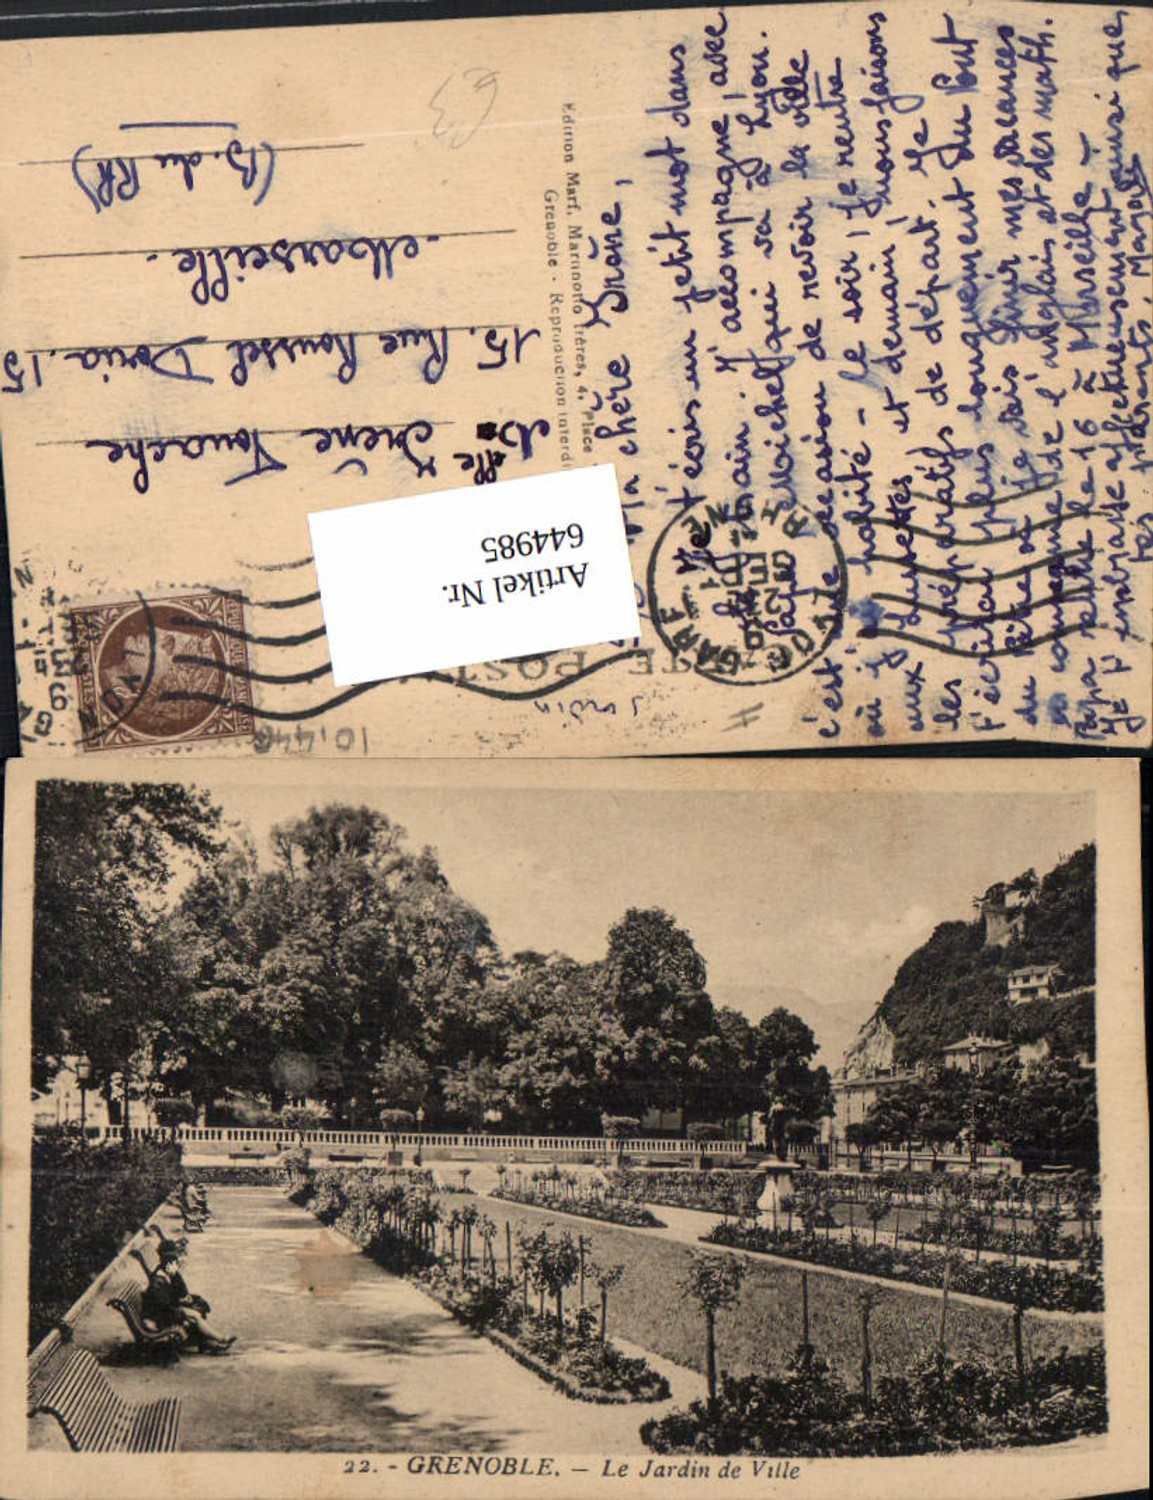 ma chère Irène,
Je t'écris un petit mot dans
le train. J'accompagne, avec
papa, Michel qui va à Lyon.
c'est une occasion de revoir la ville
où j' habité - le soir, je rentre
aux Houssettes, et demain, nous faisons
les préparatifs de départ. Je
t'écrirai plus longuement du Pont
du où je vais finir mes vacances
en compagnie de l'anglais et des math.
Papa rentre le 16 à Marseille -
Je t'embrasse affectueusement ainsi que
tes parents.
Edition Mart. Marinotto frères, 4, place
Grenoble - Reproduction interdi
Mlle Irène Touache
15. Rue Roussel Doria. 15
Marseille.
(B. du Rh)
10,44
Artikel Nr.
644985
22. - GRENOBLE. — Le Jardin de Ville